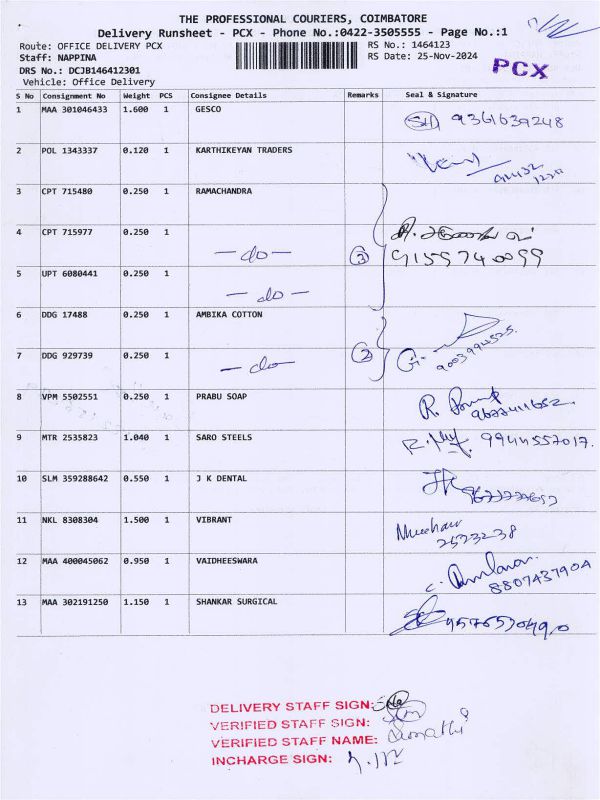 THE PROFESSIONAL COURIERS, COIMBATORE
Delivery Runsheet - PCX - Phone No.:0422-3505555 - Page No.:1
Route: OFFICE DELIVERY PCX
RS No.: 1464123
Staff: NAPPINA
RS Date: 25-Nov-2024
PCX
DRS No.: DCJB146412301
Vehicle: Office Delivery
S No Consignment No Weight PCS Consignee Details Remarks Seal & Signature
1 MAA 301046433 1.600 1 GESCO SH 9361639248
2 POL 1343337 0.120 1 KARTHIKEYAN TRADERS
3 CPT 715480 0.250 1 RAMACHANDRA
4 CPT 715977 0.250 1 -do- 3 9159740099
5 UPT 6080441 0.250 1 -do-
6 DDG 17488 0.250 1 AMBIKA COTTON
7 DDG 929739 0.250 1 -do- 2 G. 9003994525.
8 VPM 5502551 0.250 1 PRABU SOAP
9 MTR 2535823 1.040 1 SARO STEELS 9944557017.
10 SLM 359288642 0.550 1 J K DENTAL
11 NKL 8308304 1.500 1 VIBRANT 2573238
12 MAA 400045062 0.950 1 VAIDHEESWARA 880743790A
13 MAA 302191250 1.150 1 SHANKAR SURGICAL
DELIVERY STAFF SIGN:
VERIFIED STAFF SIGN:
VERIFIED STAFF NAME: Sumathi
INCHARGE SIGN: